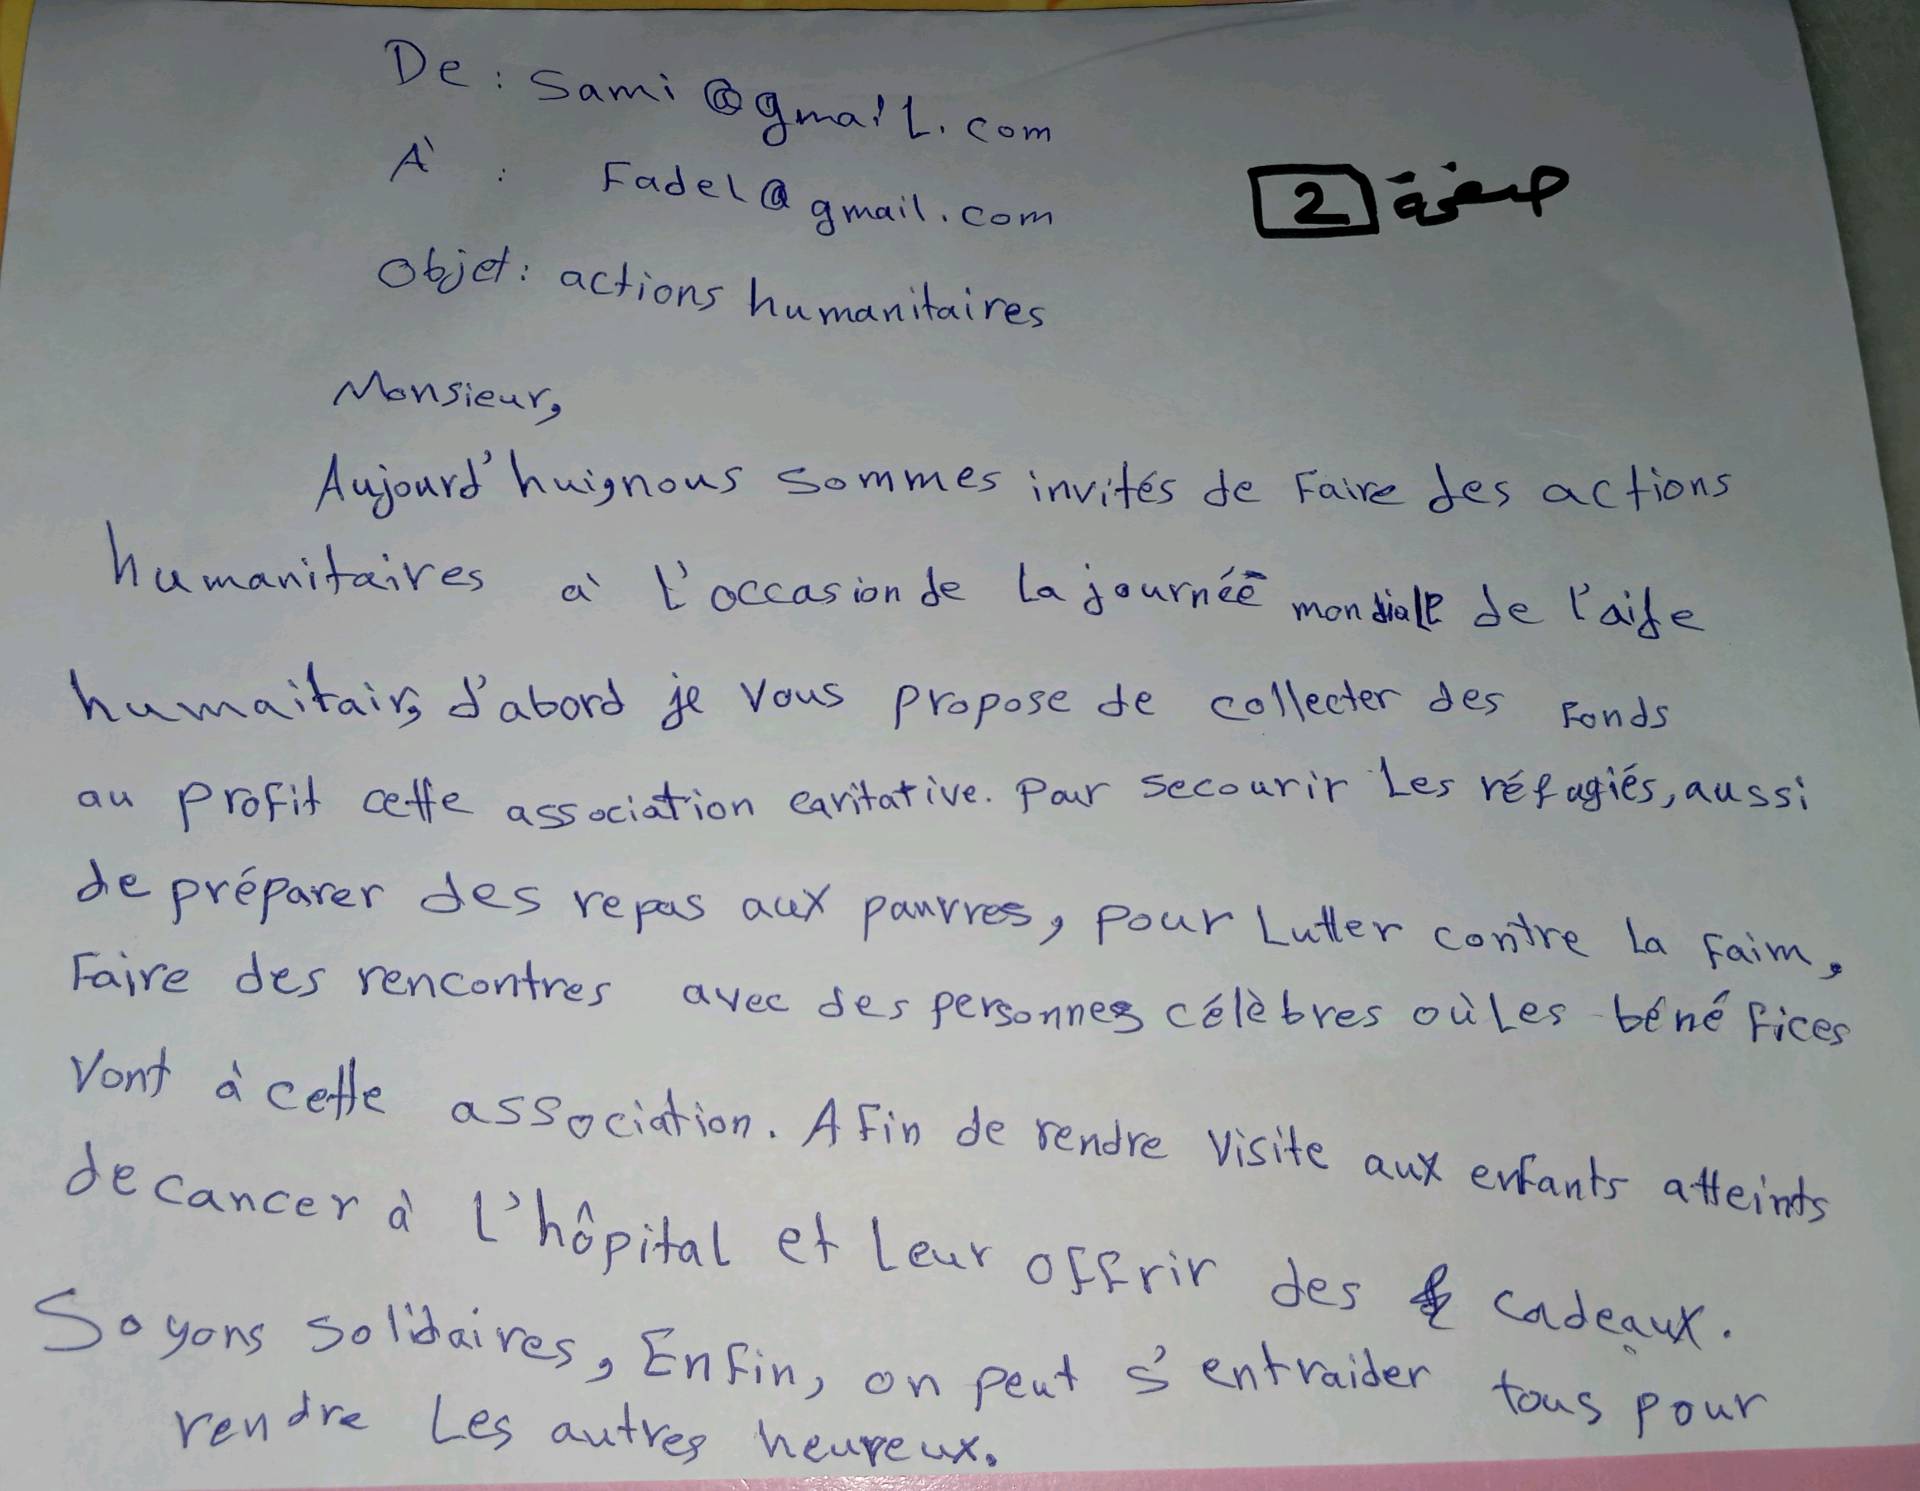 De : Sami @gmail.com
À : Fadel@gmail.com
صفحة 2
Objet: actions humanitaires
Monsieur,
Aujourd'hui, nous sommes invités de Faire des actions
humanitaires à l'occasion de la journée mondiale de l'aide
humaitair, d'abord je vous propose de collecter des Fonds
au profit cette association caritative. Pour secourir les réfugiés, aussi
de préparer des repas aux pauvres, pour Lutter contre la Faim,
Faire des rencontres avec des personnes célèbres où Les bénéfices
Vont à cette association. Afin de rendre visite aux enfants atteints
de cancer à l'hôpital et leur offrir des cadeaux.
Soyons solidaires, Enfin, on peut s'entraider tous pour
rendre Les autres heureux.